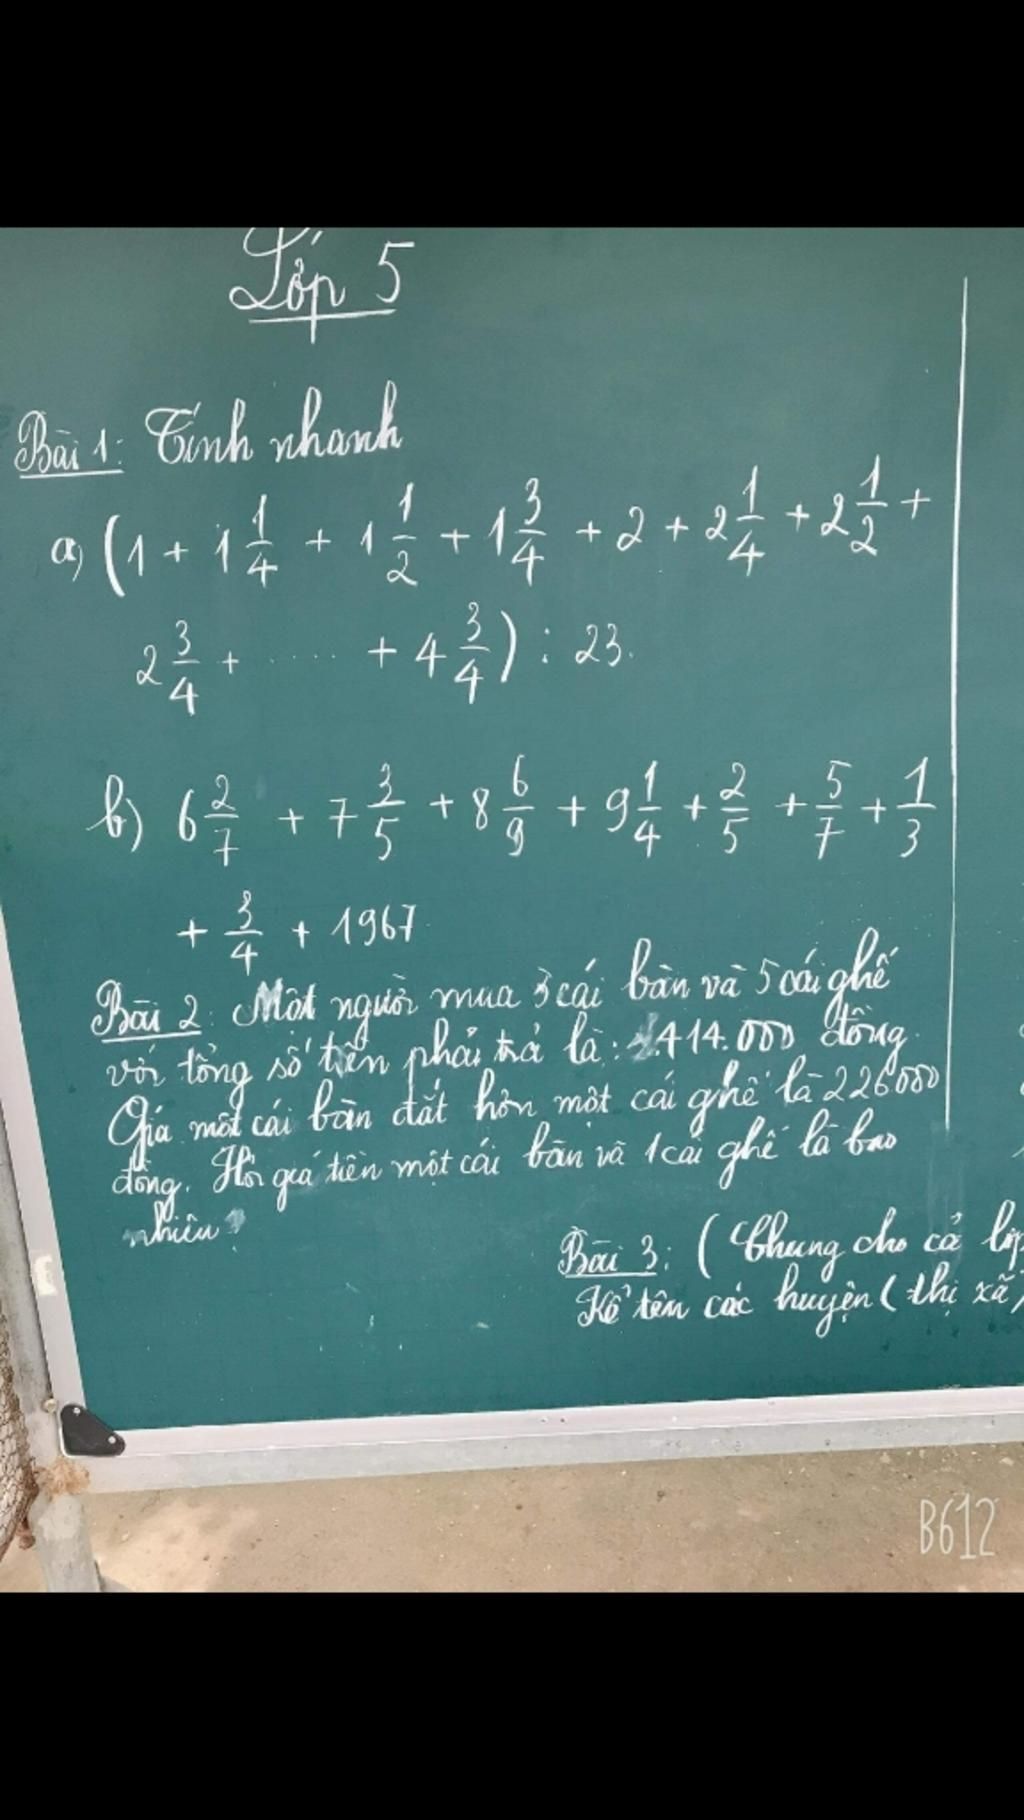 Lớp 5
Bài 1: Tính nhanh
a) (1 + 1 1/4 + 1 1/2 + 1 3/4 + 2 + 2 1/4 + 2 1/2 +
2 3/4 + ..... + 4 3/4) : 23.
b) 6 2/7 + 7 3/5 + 8 6/9 + 9 1/4 + 2/5 + 5/7 + 1/3
+ 3/4 + 1967
Bài 2: Một người mua 3 cái bàn và 5 cái ghế
với tổng số tiền phải trả là: 414.000 đồng.
Giá một cái bàn đắt hơn một cái ghế là 226000
đồng. Hỏi giá tiền một cái bàn và 1 cái ghế là bao
nhiêu?
Bài 3: (Chung cho cả lớp
Kể tên các huyện (thị xã)
B612